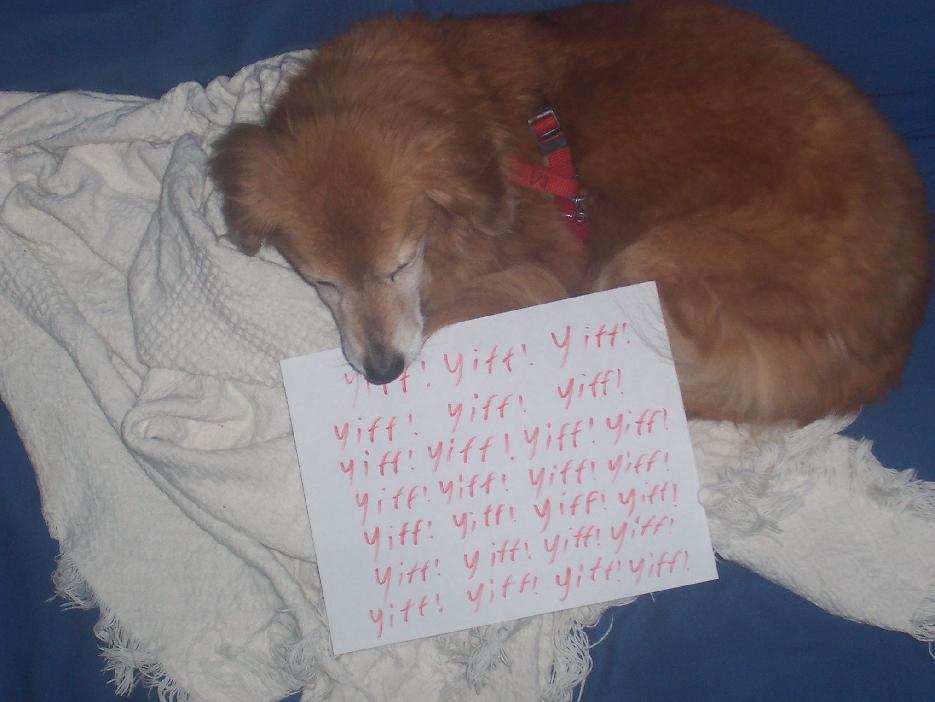 yiff! yiff! yiff!
yiff! yiff! yiff!
yiff! yiff! yiff! yiff!
yiff! yiff! yiff! yiff!
yiff! yiff! yiff! yiff!
yiff! yiff! yiff! yiff!
yiff! yiff! yiff! yiff!